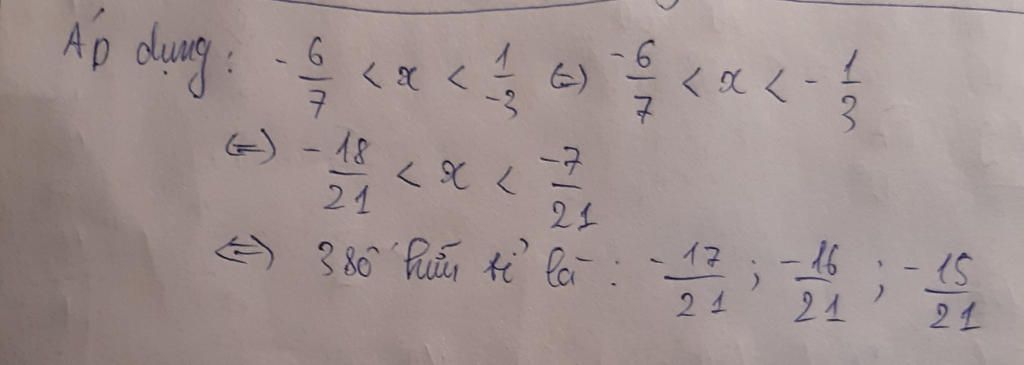 Áp dụng: -6/7 < x < 1/-3 (=) -6/7 < x < -1/3
(=) -18/21 < x < -7/21
(=) 3 số hữu tỉ là: -17/21; -16/21; -15/21